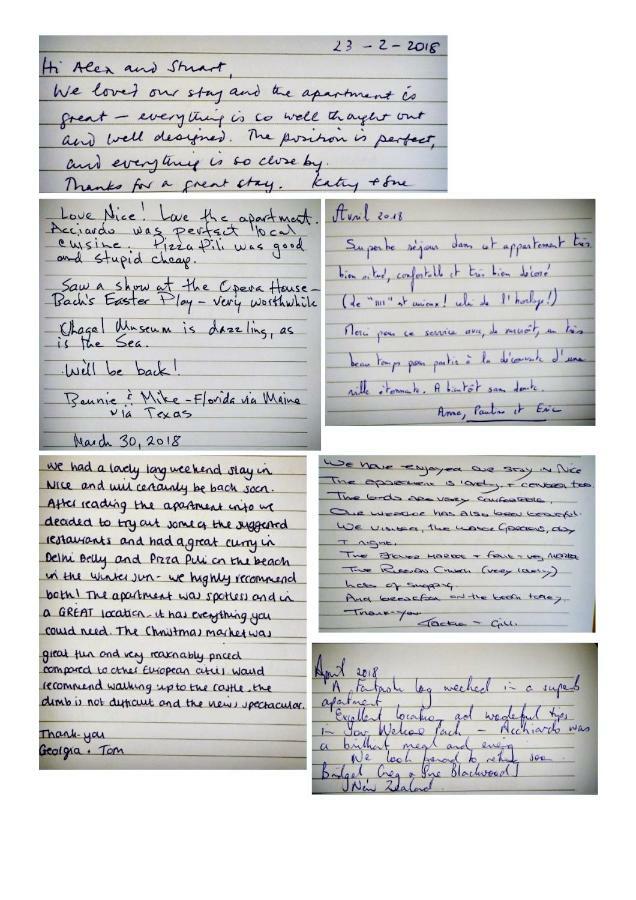 23 - 2 - 2018
Hi Alex and Stuart,
We loved our stay and the apartment is
great – everything is so well thought out
and well designed. The position is perfect,
and everything is so close by.
Thanks for a great stay. Kathy + Sue
Love Nice! Love the apartment.
Acciardo was perfect local
cuisine. Pizza Pili was good
and stupid cheap.
Saw a show at the Opera House –
Bach's Easter Play – very worthwhile
Chagal Museum is dazzling, as
is the Sea.
We'll be back!
Bennie & Mike – Florida via Maine
via Texas
March 30, 2018
Avril 2018
Superbe séjour dans cet appartement très
bien situé, confortable et très bien décoré
(de "111" et unieux! celui de l'horloge!)
Merci pour ce service avec, de surcroît, un très
beau temps pour partir à la découverte d'une
ville étonnante. A bientôt sans doute.
Anne, Pauline et Eric
We had a lovely long weekend stay in
Nice and will certainly be back soon.
After reading the apartment info we
decided to try out some of the suggested
restaurants and had a great curry in
Delhi Belly and Pizza Pili on the beach
in the winter sun - we highly recommend
both! The apartment was spotless and in
a GREAT location - it has everything you
could need. The Christmas market was
great fun and very reasonably priced
compared to other European cities. Would
recommend walking up to the castle, the
climb is not difficult and the views spectacular.
Thank you
Georgia + Tom
We have enjoyed our stay in Nice
The apartment is lovely, + comfy too.
The beds are very comfortable.
Our weather has also been beautiful.
We visited, the Gardens, day
+ night.
The Flower Market + Fruit + veg Market
The Russian Church (very lovely)
Lots of shopping.
And breakfast on the beach today.
Thank-you
Jackie - Gill.
April 2018
A Fantastic long weekend in a superb
apartment
Excellent location and wonderful tips
in your Welcome Pack – Acchiardo was
a brilliant meal and evening
We look forward to return soon.
Bridget Greg & Sue Blackwood
New Zealand